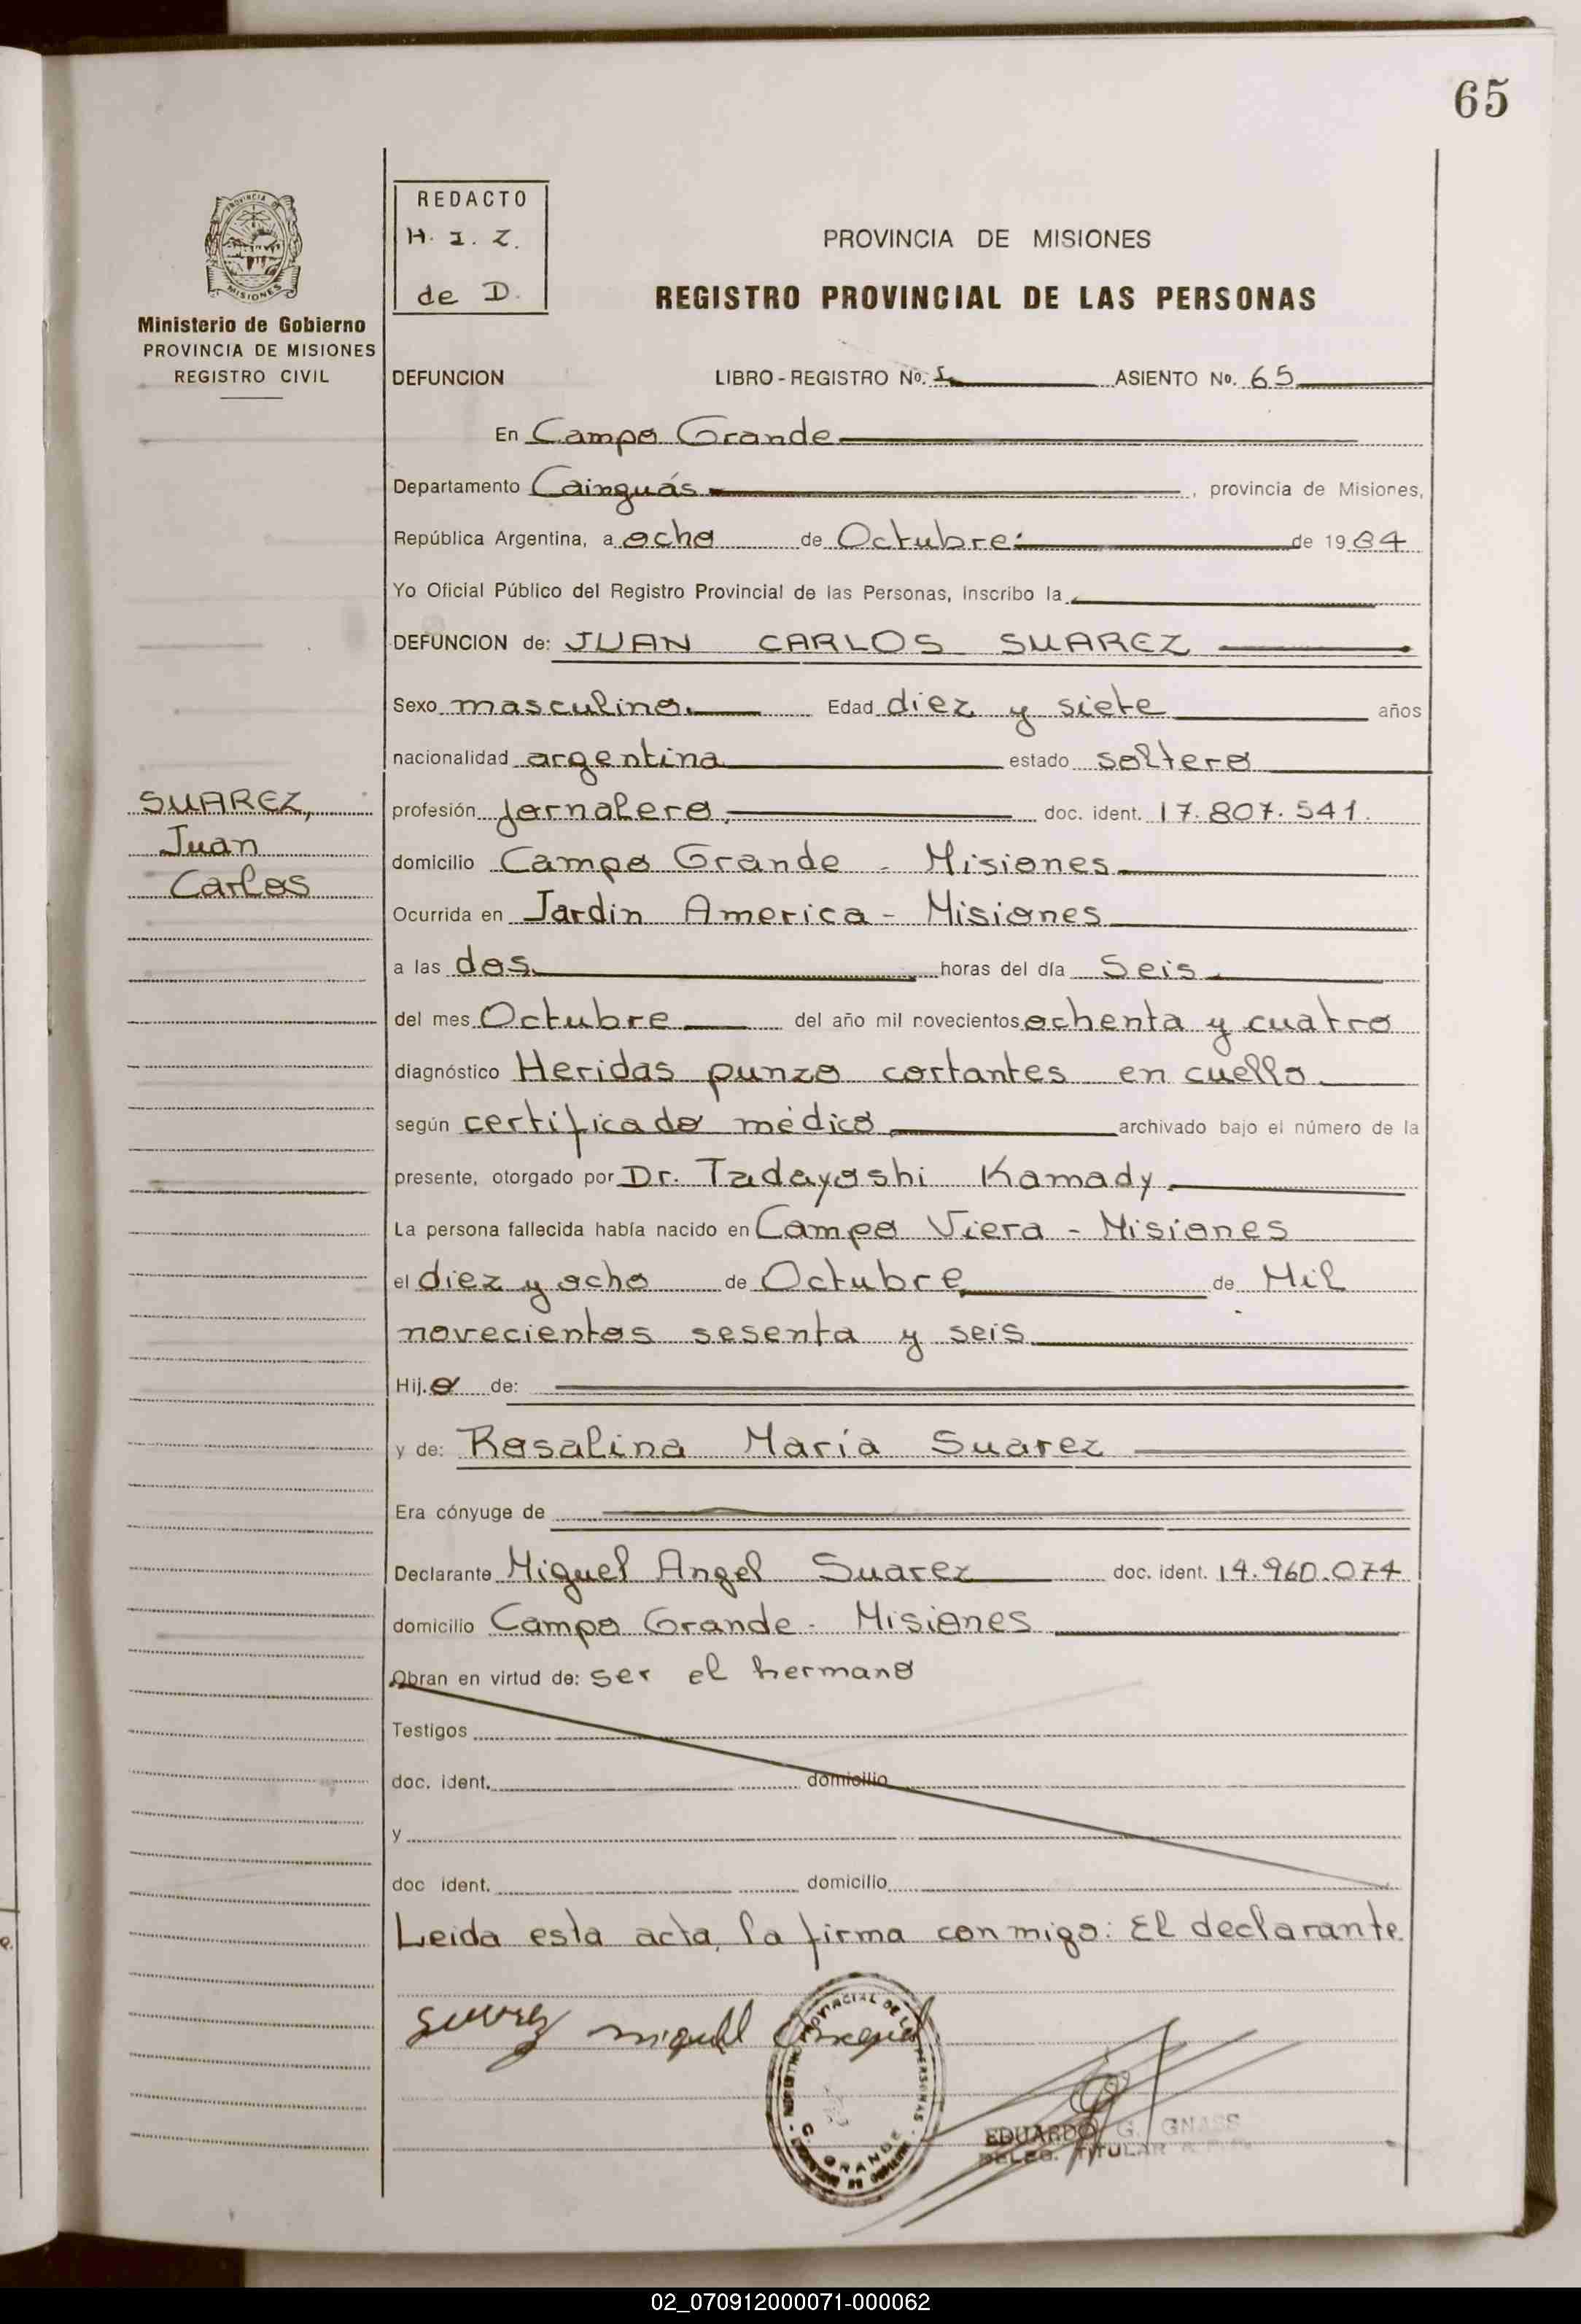 65
REDACTO
H. I. Z.
de D.
PROVINCIA DE MISIONES
REGISTRO PROVINCIAL DE LAS PERSONAS
MISIONES
Ministerio de Gobierno
PROVINCIA DE MISIONES
REGISTRO CIVIL
DEFUNCION LIBRO - REGISTRO No. I ASIENTO No. 65
En Campo Grande
Departamento Cainguás, provincia de Misiones,
República Argentina, a ocho de Octubre de 1984
Yo Oficial Público del Registro Provincial de las Personas, Inscribo la
DEFUNCION de: JUAN CARLOS SUAREZ
Sexo masculino. Edad diez y siete años
nacionalidad argentina estado soltero
SUAREZ,
Juan
Carlos
profesión jornalero, doc. ident. 17.807.541.
domicilio Campo Grande - Misiones
Ocurrida en Jardin America - Misiones
a las dos horas del día Seis
del mes Octubre del año mil novecientos ochenta y cuatro
diagnóstico Heridas punzo cortantes en cuello
según certificado médico archivado bajo el número de la
presente, otorgado por Dr. Tadayoshi Kamady
La persona fallecida había nacido en Campo Viera - Misiones
el diez y ocho de Octubre de Mil
novecientos sesenta y seis
Hij.o de:
y de: Rosalina María Suarez
Era cónyuge de
Declarante Miguel Angel Suarez doc. ident. 14.960.074
domicilio Campo Grande - Misiones
Obran en virtud de: ser el hermano
Testigos
doc. ident. domicilio
y
doc ident. domicilio
Leida esta acta, la firma conmigo: El declarante
Suarez miguel Angel
REGISTRO PROVINCIAL DE LAS PERSONAS
C. GRANDE
EDUARDO G. GNASS
DELEG. TITULAR
02_070912000071-000062